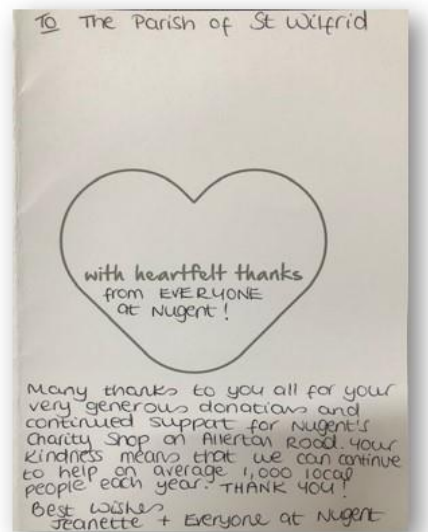 To The Parish of St Wilfrid
with heartfelt thanks
from EVERYONE
at Nugent!
Many thanks to you all for your
very generous donations and
continued support for Nugent's
Charity Shop on Allerton Road. Your
kindness means that we can continue
to help on average 1,000 local
people each year. THANK YOU!
Best Wishes
Jeanette + Everyone at Nugent